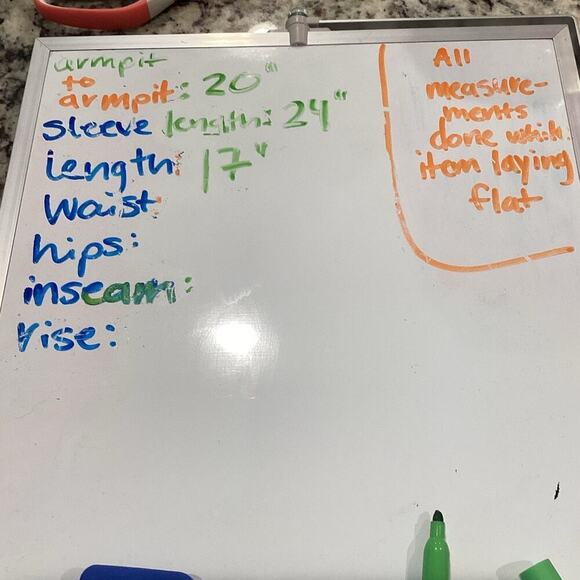 armpit
to
armpit: 20"
sleeve length: 24"
length: 17"
Waist:
hips:
inseam:
rise:
All
measure-
ments
done
item laying
flat